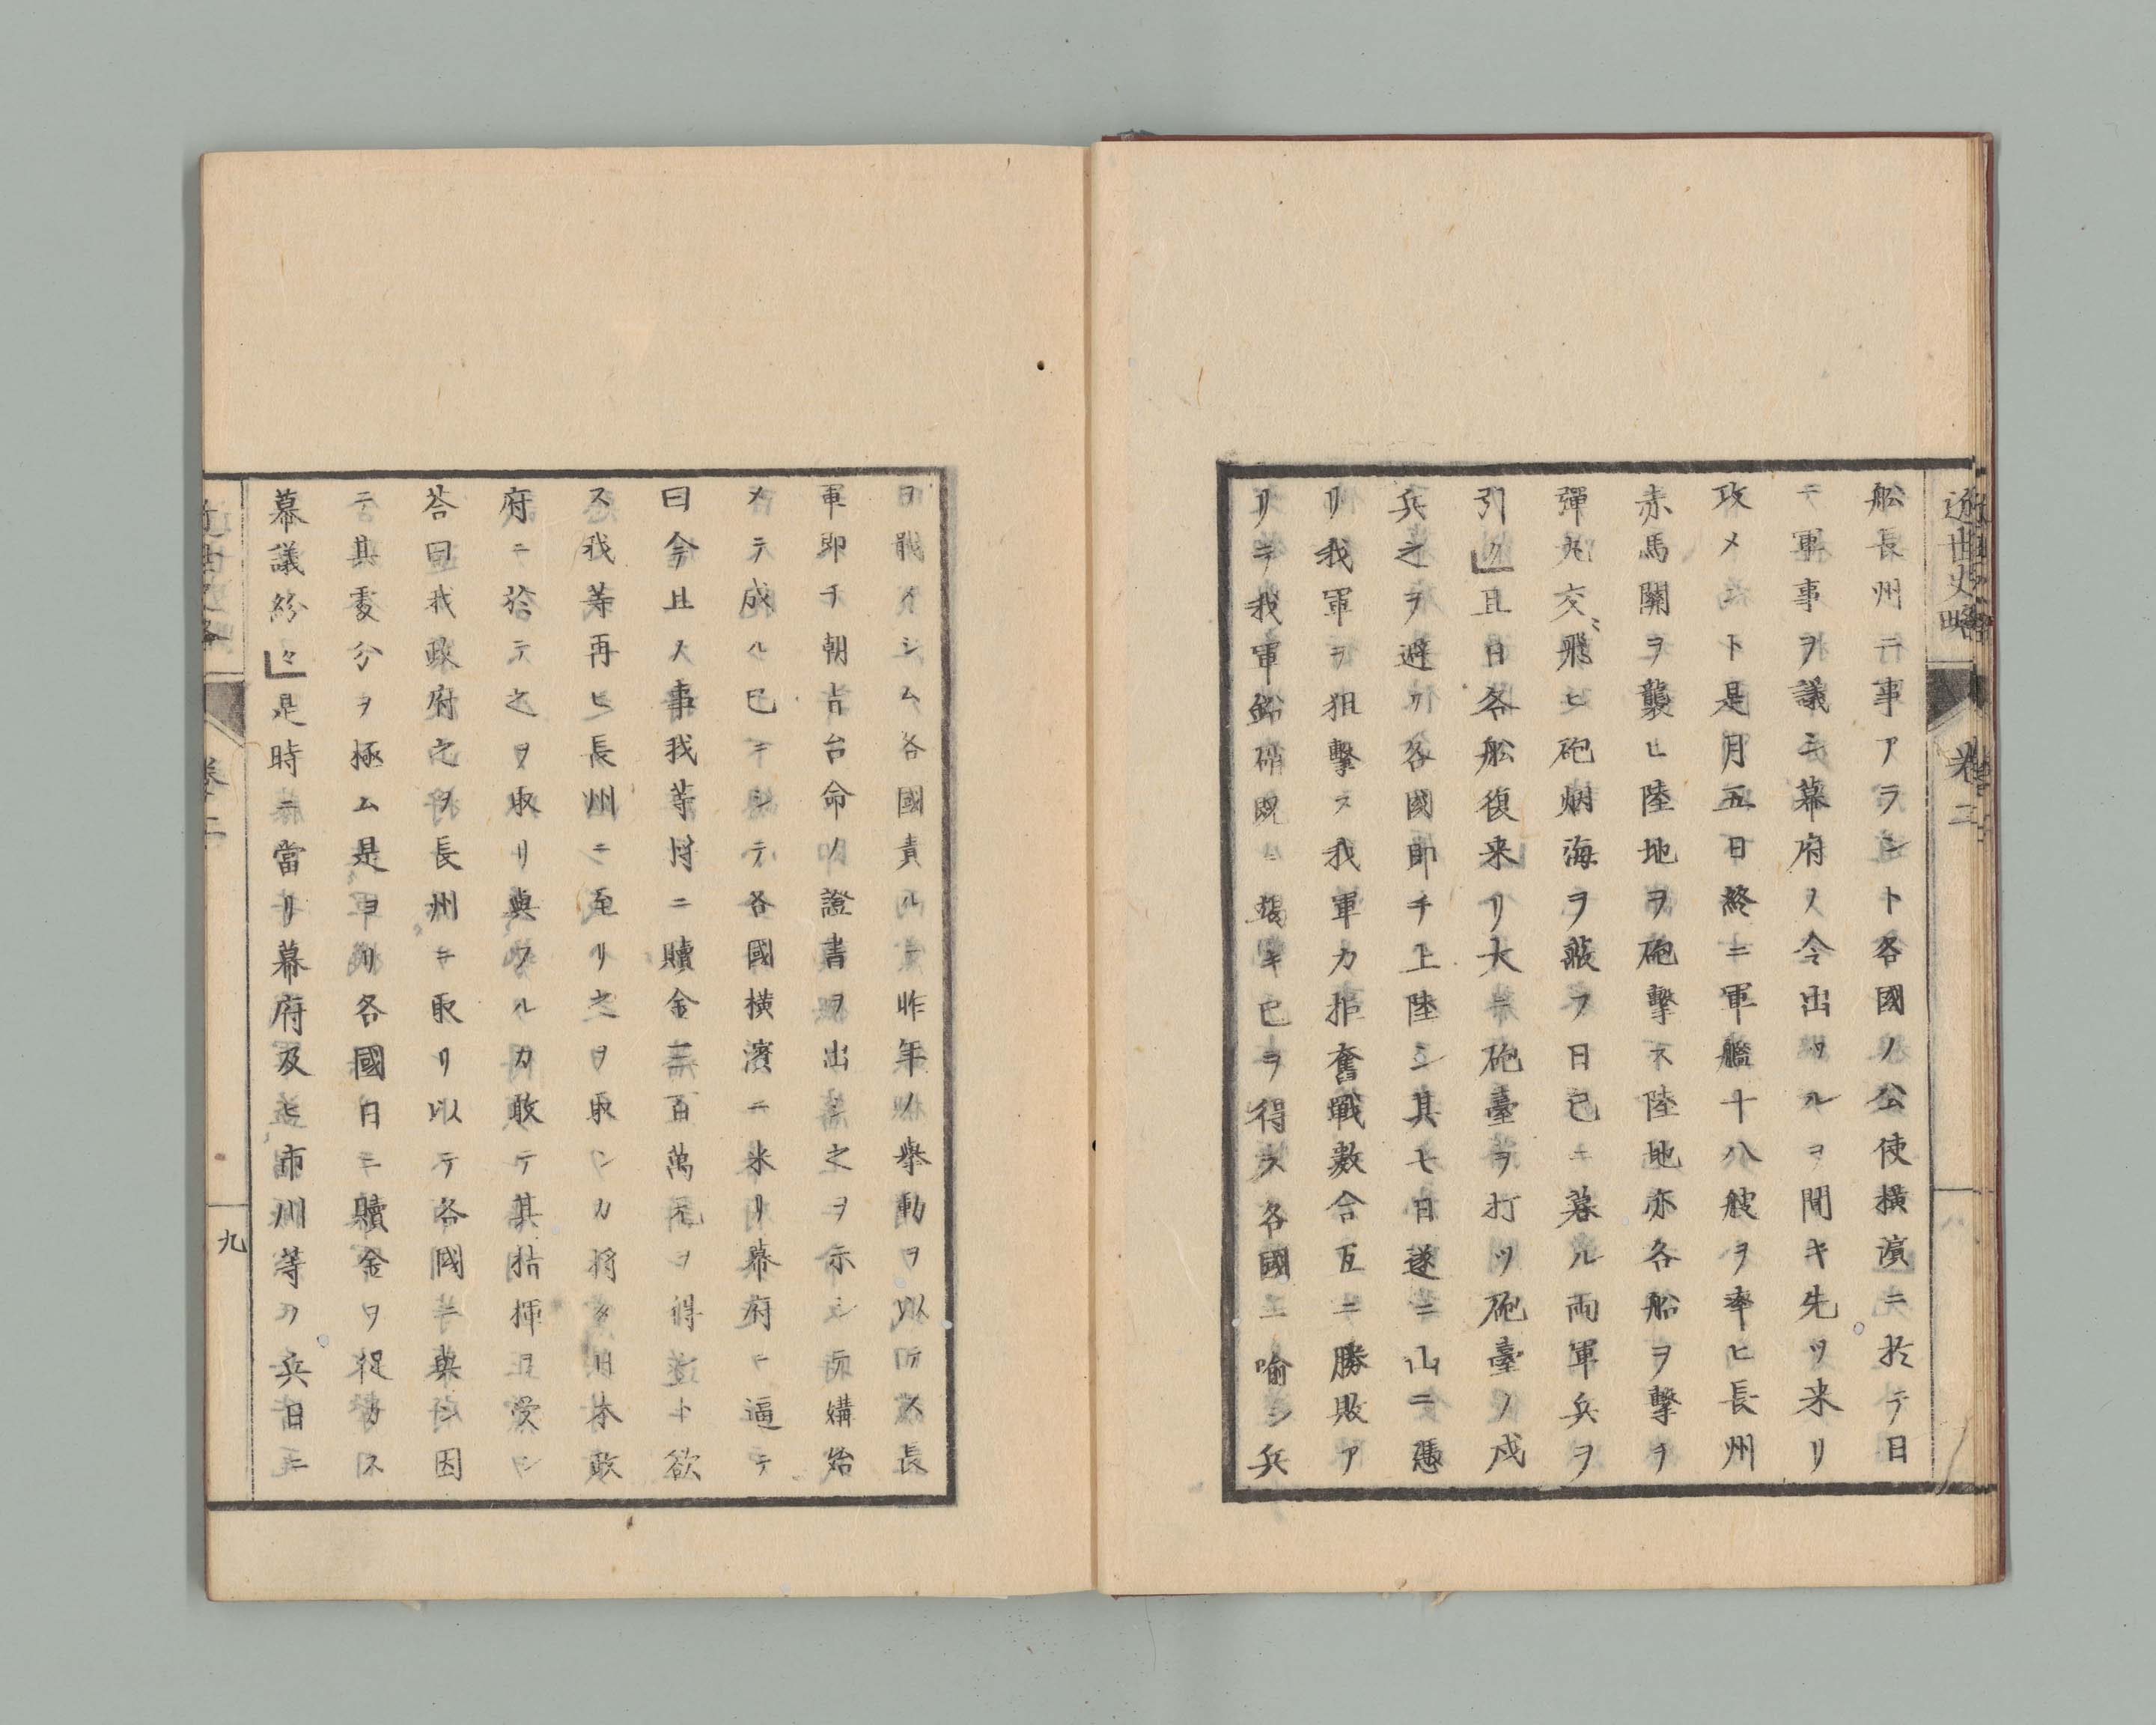 近世史略 卷二
舩長州ニ事アラント各國ノ公使横濱ニ於テ日
ニ軍事ヲ議ス幕府ノ令出ツルヲ聞キ先ツ来リ
攻メント是月五日終ニ軍艦十八艘ヲ率ヒ長州
赤馬關ヲ襲ヒ陸地ヲ砲撃ス陸地亦各船ヲ撃ヲ
彈丸交飛ヒ砲烟海ヲ蔽フ日已ニ暮ル両軍兵ヲ
引ク且日各舩復来リ大ニ砲臺ヲ打ツ砲臺ノ戍
兵之ヲ避ク各國即チ上陸シ其七日遂ニ山ニ憑
リ我軍ヲ狙撃ス我軍力拒奮戰數合互ニ勝敗ア
リ我軍鉛硝既ニ竭キ已ヲ得ス各國ニ喻シ兵
ヲ戢メシム各國責ルニ昨年ノ舉動ヲ以ス長
軍即チ朝旨台命ノ證書ヲ出シ之ヲ示シ媾始
メテ成ル已ニシテ各國横濱ニ来リ幕府ニ逼テ
曰今且ツ事我等将ニ贖金三百萬元ヲ得ント欲
ス我等再ヒ長州ニ至リ之ヲ取ンカ将タ日本政
府ニ於テ之ヲ取リ與フルカ敢テ其指揮ヲ受ン
荅曰我政府之ヲ長州ニ取リ以テ各國ニ與ン因
テ其處分ヲ極ム是ヨリ各國日ニ贖金ヲ促カス
幕議紛々是時ニ當リ幕府及ヒ市川等ノ兵日ニ
近世史略 卷二 九